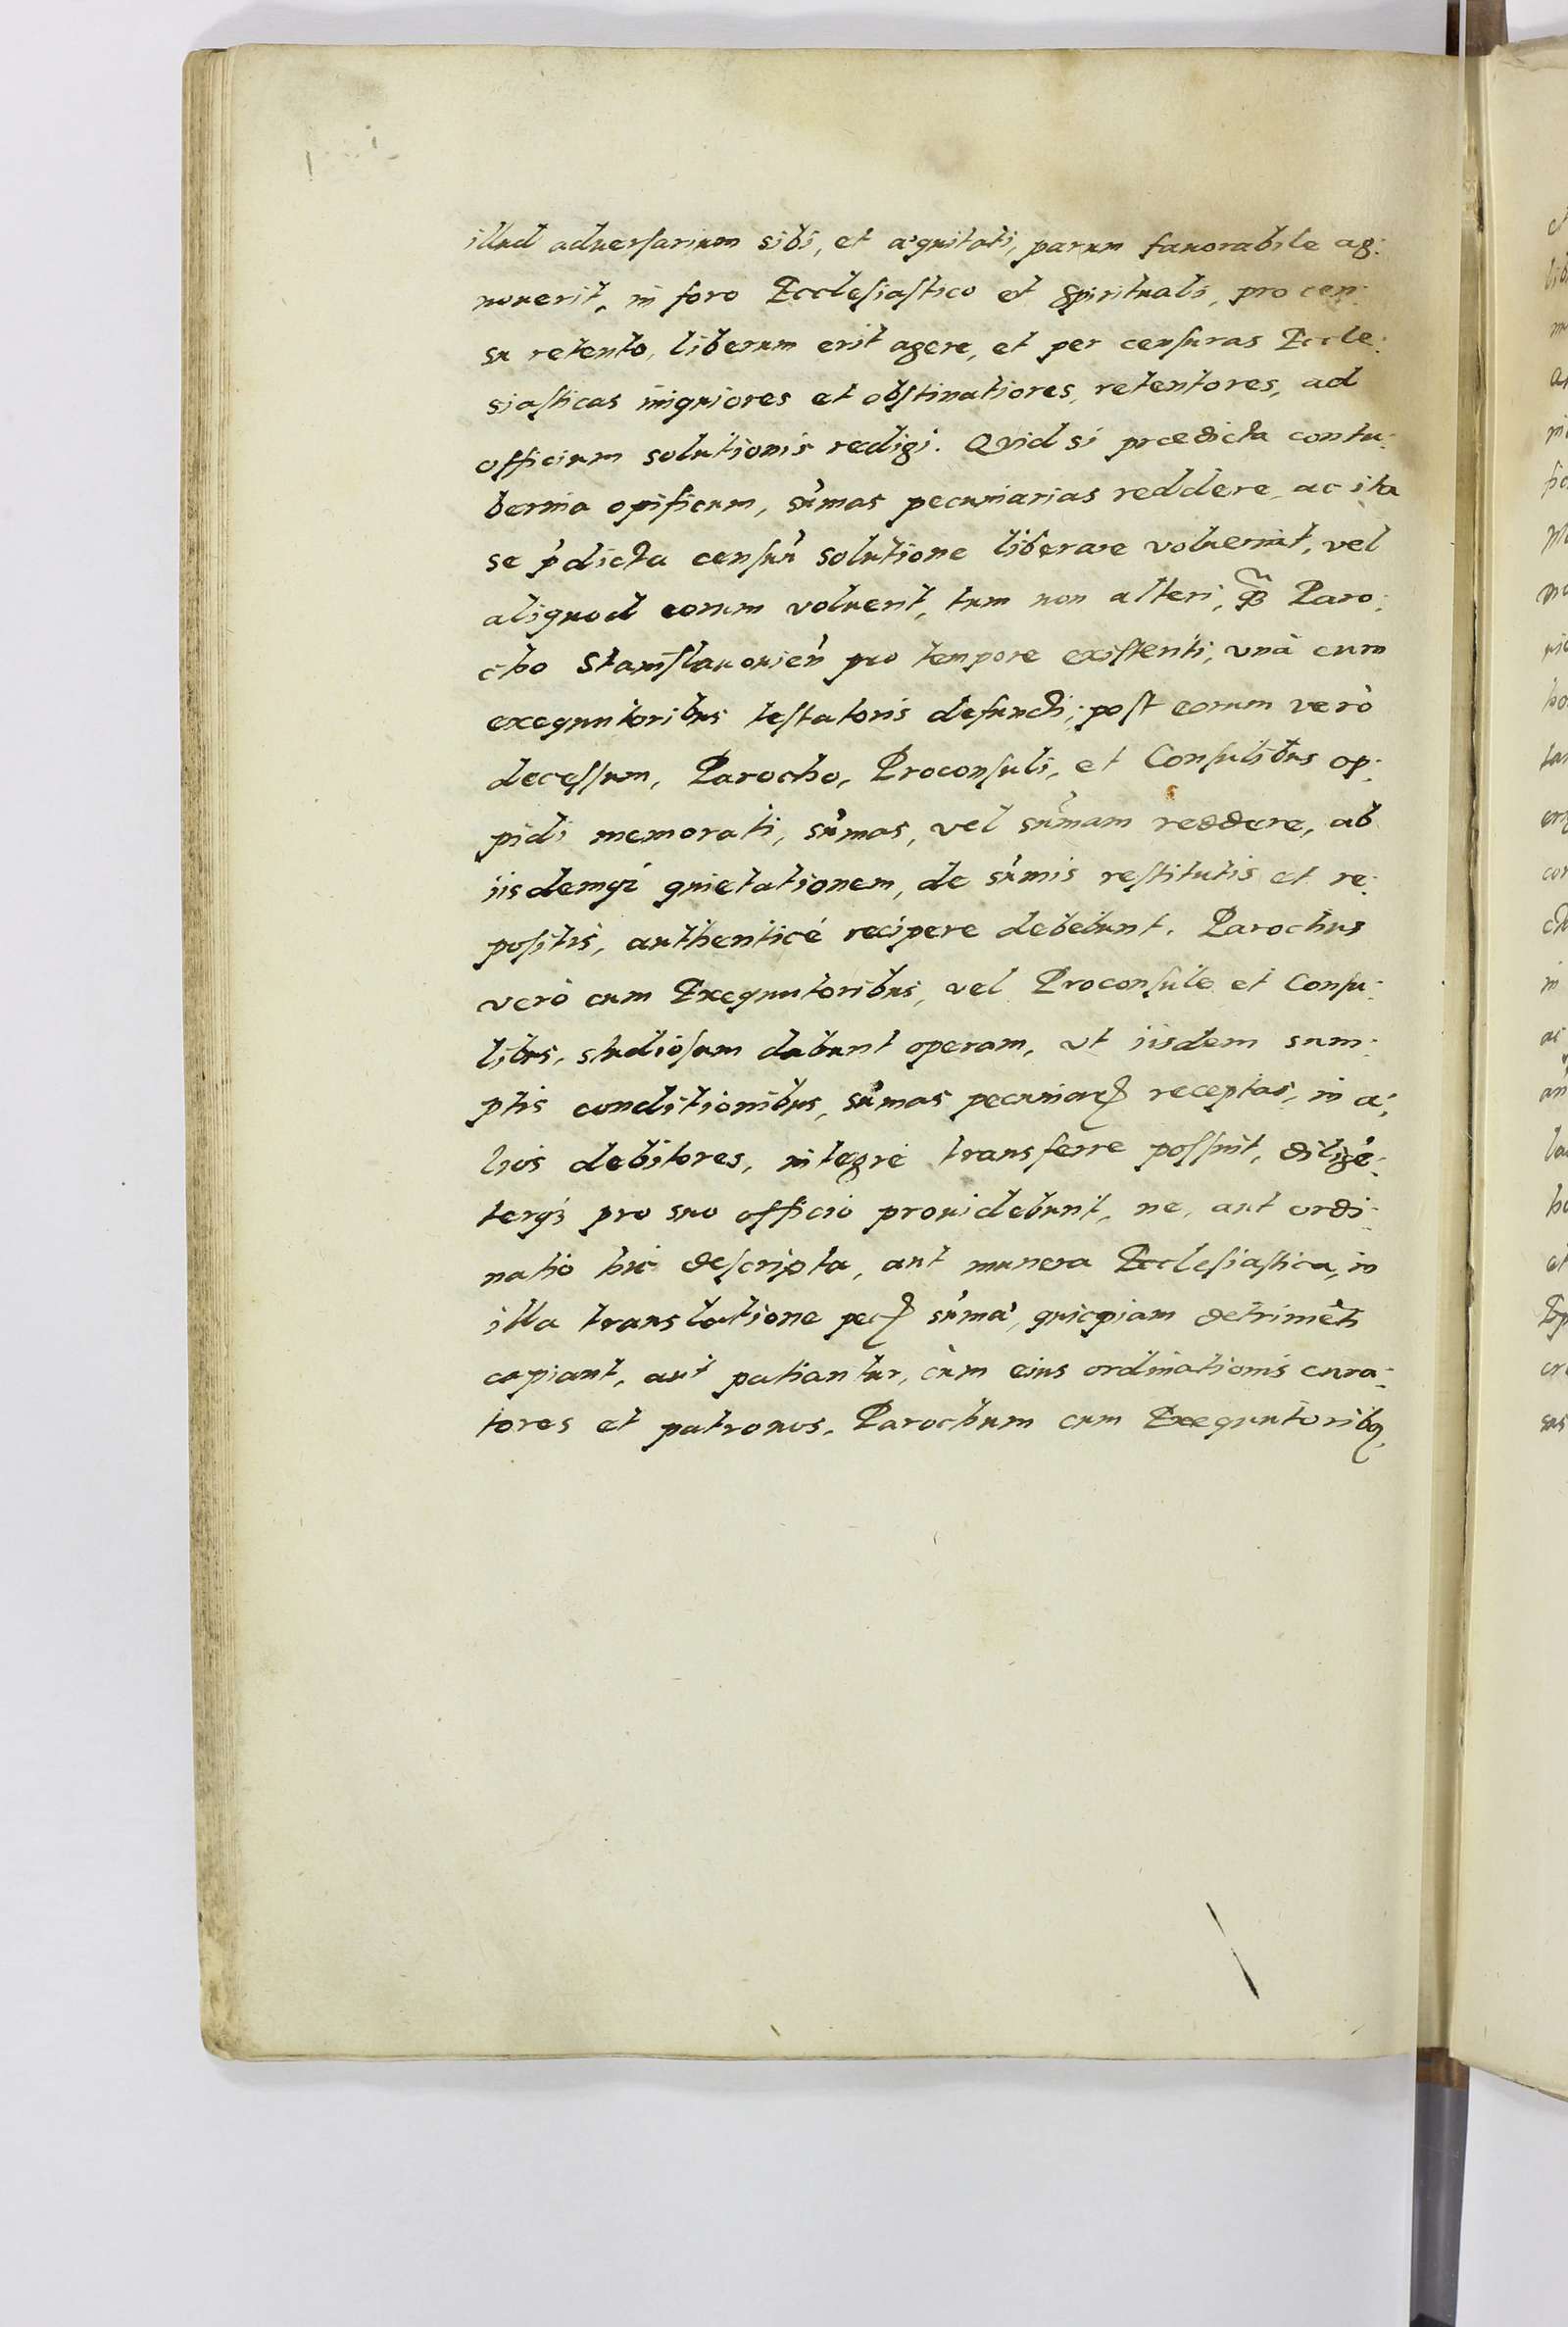 illud aduerſarium sibi, et æquitati, parum fauorabile ag:
nouerit, in foro Eccleſiaſtico et Spirituali, pro cen:
su retento, liberum erit agere, et per cenſuras Eccle:
siaſticas iniquiores et obſtinatiores, retentores, ad
officium solutionis redigi. Quid si prædicta contu:
bernia opificum, sum̃as pecuniarias reddere, ac ita
se p̃dicta cenſuũ solutione liberare voluerint, vel
aliquod eorum voluerit, tum non alteri, qᷓ Paro:
cho Staniſlauouien̄ pro tempore exiſtenti, vnà cum
exequutoribus teſtatoris defuncti; poſt eorum verò
deceſſum, Parocho, Proconſuli, et Conſulibus op:
pidi memorati, sum̃as, vel sum̃am reddere, ab
iisdemq́ꝫ quietationem, de sum̃is reſtitutis et re:
poſitis, authenticé recipere debebunt. Parochus
verò cum Exequutoribus, vel Proconſule et Conſu:
libus, studioſam dabunt operam, vt iisdem sum:
ptis conditionibus, sum̃as pecuniarꝭ receptas, in a:
lios debitores, integrè transferre poſſint, diligẽ:
terq́ꝫ pro suo officio prouidebunt, ne, aut ordi:
natio hic deſcripta, aut munera Eccleſiaſtica, in
illa translatione pecꝭ sum̃ã, quicpiam detrimẽti
capiant, aut patiantur, cùm eius ordinationis cura:
tores et patronos, Parochum cum Exequutoribꝯ,